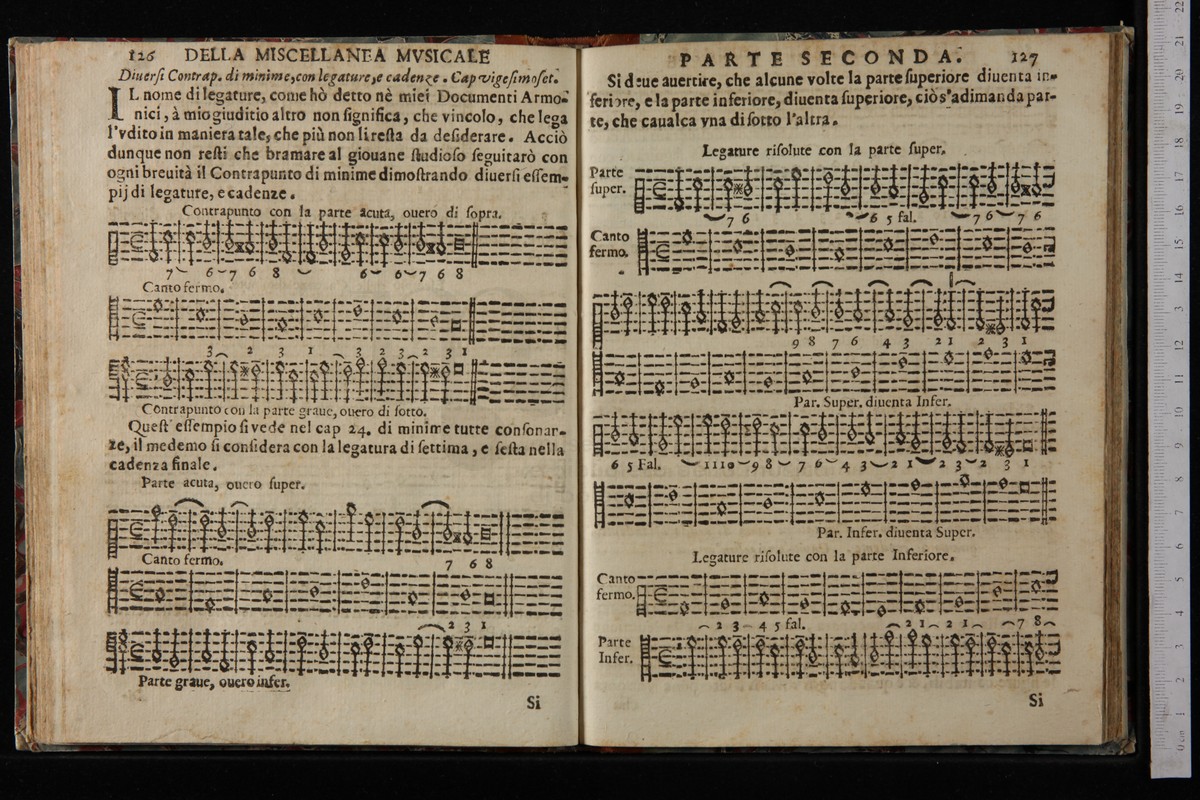 126 DELLA MISCELLANEA MVSICALE
Diuerſi Contrap. di minime, con legature, e cadenze. Cap vigeſimoſet.
IL nome di legature, come hò detto nè miei Documenti Armo-
nici, à mio giuditio altro non ſignifica, che vincolo, che lega
l'vdito in maniera tale, che più non li reſta da deſiderare. Acciò
dunque non reſti che bramare al giouane ſtudioſo ſeguitarò con
ogni breuità il Contrapunto di minime dimoſtrando diuerſi eſſem-
pij di legature, e cadenze.
Contrapunto con la parte acuta, ouero di ſopra.
7 6 7 6 8 6 6 7 6 8
Canto fermo.
3 2 3 1 3 2 3 2 3 1
Contrapunto con la parte graue, ouero di ſotto.
Queſt' eſſempio ſi vede nel cap 24. di minime tutte conſonan-
ze, il medemo ſi conſidera con la legatura di ſettima, e ſeſta nella
cadenza finale.
Parte acuta, ouero ſuper.
Canto fermo. 7 6 8
2 3 1
Parte graue, ouero infer.
Si
PARTE SECONDA. 127
Si deue auertire, che alcune volte la parte ſuperiore diuenta in-
feriore, e la parte inferiore, diuenta ſuperiore, ciò s'adimanda par-
te, che caualca vna di ſotto l'altra.
Legature riſolute con la parte ſuper.
Parte
ſuper.
7 6 6 5 fal. 7 6 7 6
Canto
fermo.
9 8 7 6 4 3 2 1 2 3 1
Par. Super. diuenta Infer.
6 5 Fal. 11 10 9 8 7 6 4 3 2 1 2 3 2 3 1
Par. Infer. diuenta Super.
Legature riſolute con la parte Inferiore.
Canto
fermo.
2 3 4 5 fal. 2 1 2 1 7 8
Parte
Infer.
Si